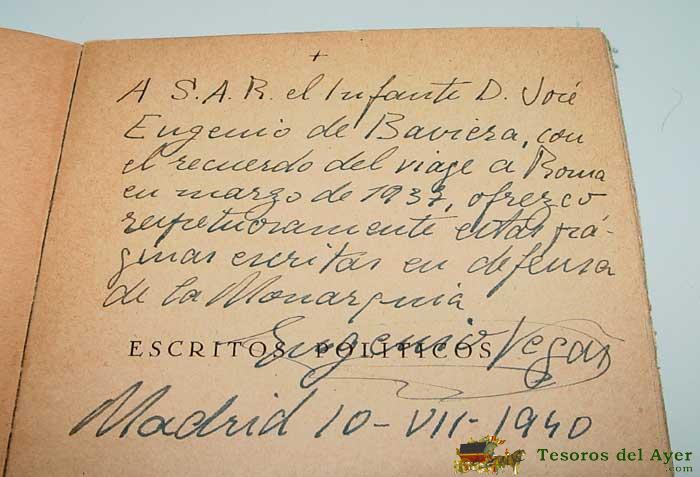 +
A S.A.R. el Infante D. José
Eugenio de Baviera, con
el recuerdo del viage a Roma
en marzo de 1937, ofrezco
respetuosamente estas pá-
ginas escritas en defensa
de la Monarquia
Eugenio Vegas
ESCRITOS POLITICOS
Madrid 10-VII-1940
Tesoros del Ayer
.com